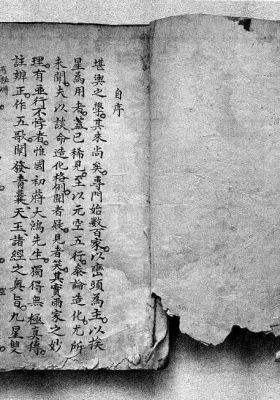 自序
堪輿之學其來尚矣專門始數百家以巒頭為主以挨
星為用者蓋已稀見至以元空五行泰論造化尤所
未聞夫以談命造化格例聞者疑見者笑其實兩家之妙
理有並行不悖者惟國初蔣大鴻先生獨得無極真傳
註辨正作五歌闡發青囊天玉諸經之奧旨九星雙